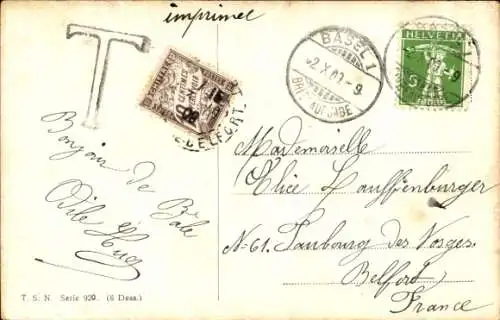 imprimé
T
BASEL 1
2.X.09-9
BRIEFAUFGABE
HELVETIA
5
BELFORT
Bonjour de
Bâle
Odile
Mademoiselle
Elice Lauffenburger
N=61. Faubourg des Vosges
Belfort
France
T. S. N. Serie 920. (6 Dess.)